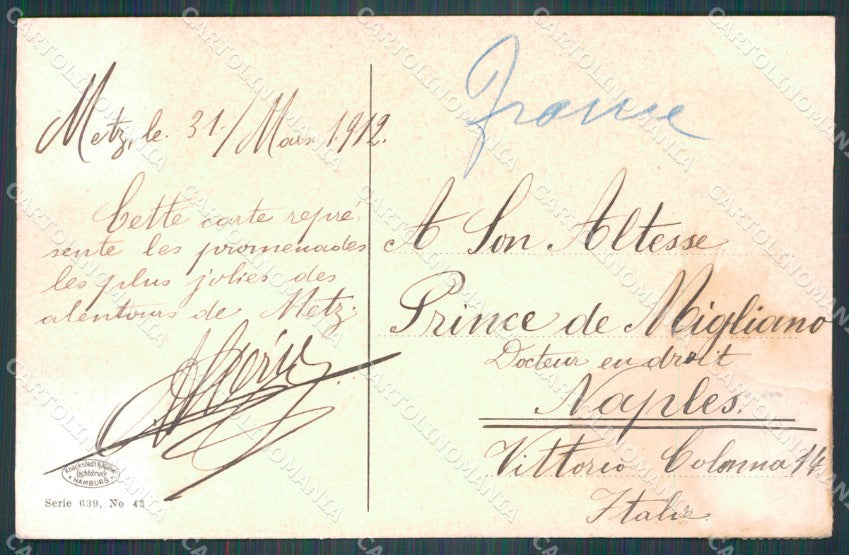 Metz, le 31/Mars 1912.
Cette carte repré-
sente les promenades
les plus jolies des
alentours de Metz.
Knackstedt & Näther
Lichtdruck
HAMBURG
Serie 639, No 43
A Son Altesse
Prince de Migliano
Docteur en droit
Naples.
Vittorio Colonna 14
Italie.
CARTOLINOMANIA